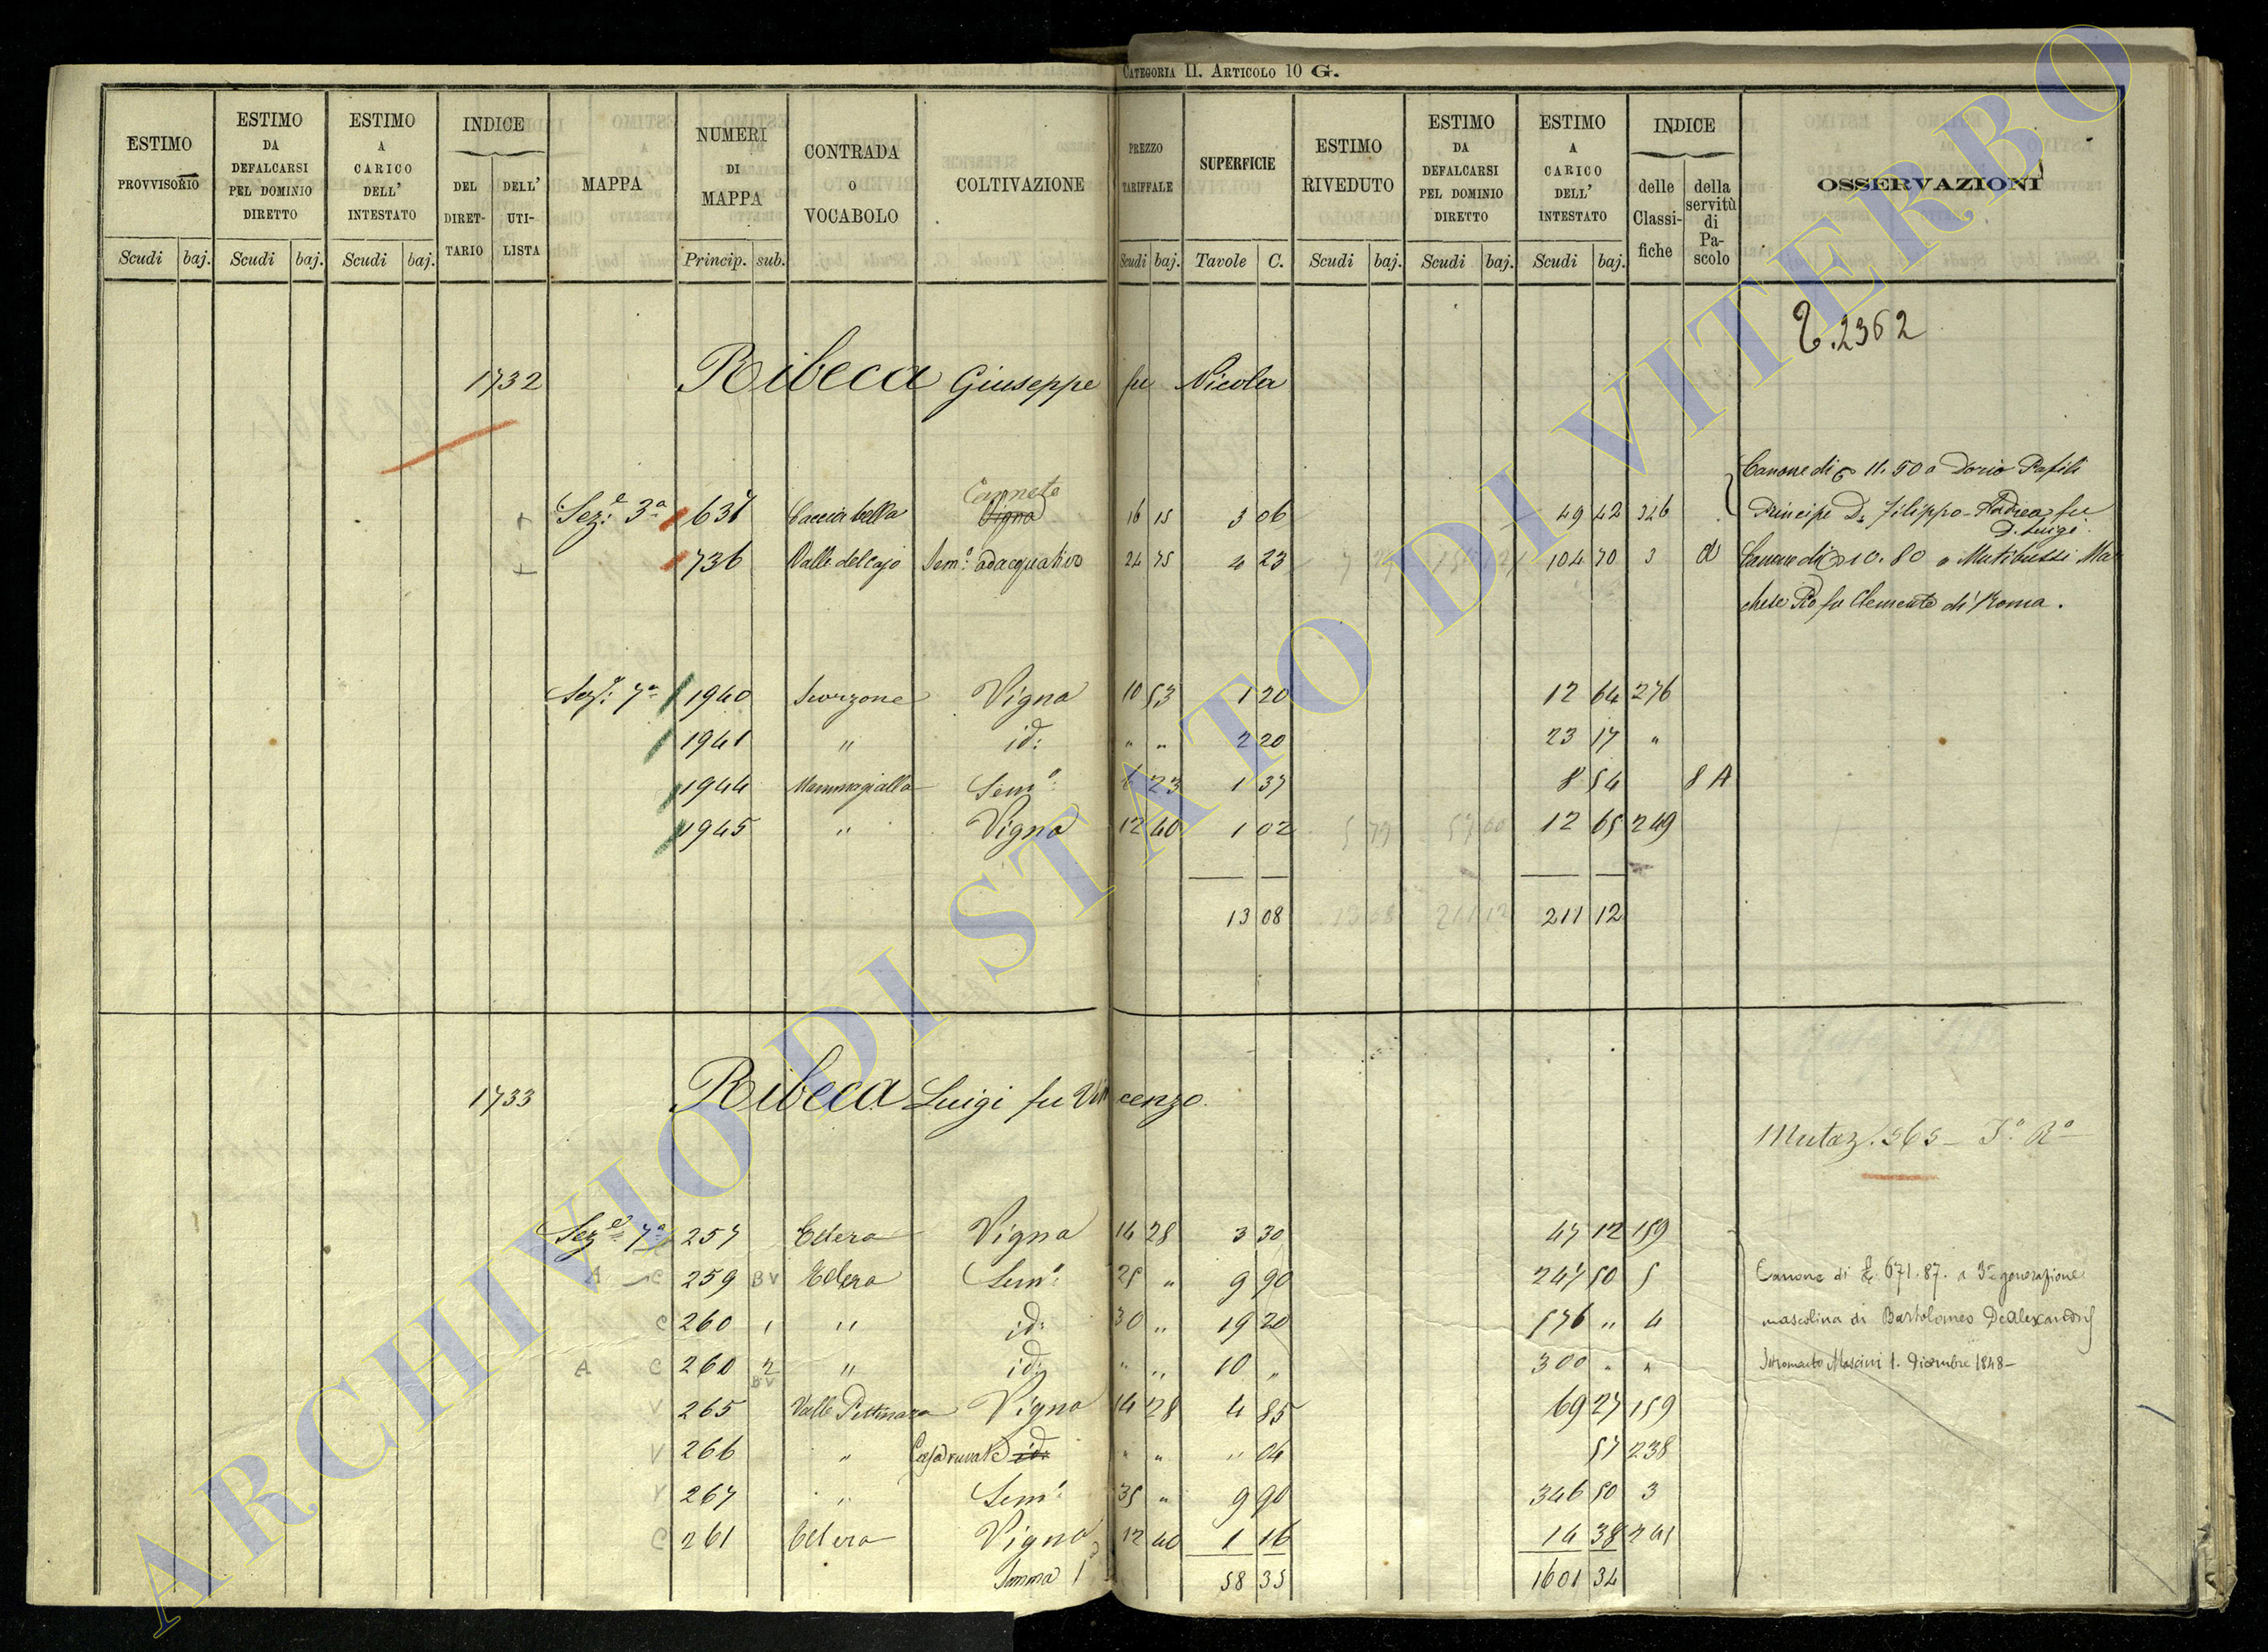 CATEGORIA II. ARTICOLO 10 G.
ESTIMO PROVVISORIO
ESTIMO DA DEFALCARSI PEL DOMINIO DIRETTO
ESTIMO A CARICO DELL' INTESTATO
INDICE
DEL DIRETTARIO
DELL' UTILISTA
MAPPA
NUMERI DI MAPPA
CONTRADA O VOCABOLO
COLTIVAZIONE
PREZZO TARIFFALE
SUPERFICIE
ESTIMO RIVEDUTO
ESTIMO DA DEFALCARSI PEL DOMINIO DIRETTO
ESTIMO A CARICO DELL' INTESTATO
INDICE
delle Classifiche
della servitù di Pascolo
OSSERVAZIONI
Scudi baj. Scudi baj. Scudi baj. Princip. sub. Scudi baj. Tavole C. Scudi baj. Scudi baj. Scudi baj.
2362
1732 Ribeca Giuseppe fu Nicola
Canone di 11.50 a Doria Pafili
Canneto
Sez.e 3a 637 Cacciabella Vigna 16 15 3 06 49 42 326 Principe D. Filippo Andrea fu
D. Luigi
736 Valle del Cajo Sem.o adacquativo 24 75 4 23 104 70 3 Canone di 10.80 a Mutibussi Mar
chese Pio fu Clemente di Roma.
Sez.e 7a 1940 Scorzone Vigna 10 53 1 20 12 64 276
1941 " id: " " 2 20 23 17 "
1944 Mammagialla Sem.o 6 23 1 37 8 54 8 A
1945 " Vigna 12 40 1 02 12 65 249
13 08 211 12
1733 Ribeca Luigi fu Vincenzo
Mutaz. 565
Sez.e 7a 257 Ellera Vigna 14 28 3 30 47 12 159
A C 259 B V Ellera Sem.o 25 " 9 90 247 50 5 Canone di 671.87. a 3a generazione
C 260 1 " id: 30 " 19 20 576 " 4 mascolina di Bartolomeo DeAlexandris
A C 260 2 B V " id: " " 10 " 300 " " Istromento Mascini 1. Dicembre 1848
V 265 Valle Pettinara Vigna 14 28 4 85 69 27 159
V 266 " Casa rurale id: " " " 04 57 238
V 267 " Sem.o 35 " 9 90 346 50 3
C 261 Ellera Vigna 12 40 1 16 14 38 241
Somma 58 35 1601 34
ARCHIVIO DI STATO DI VITERBO